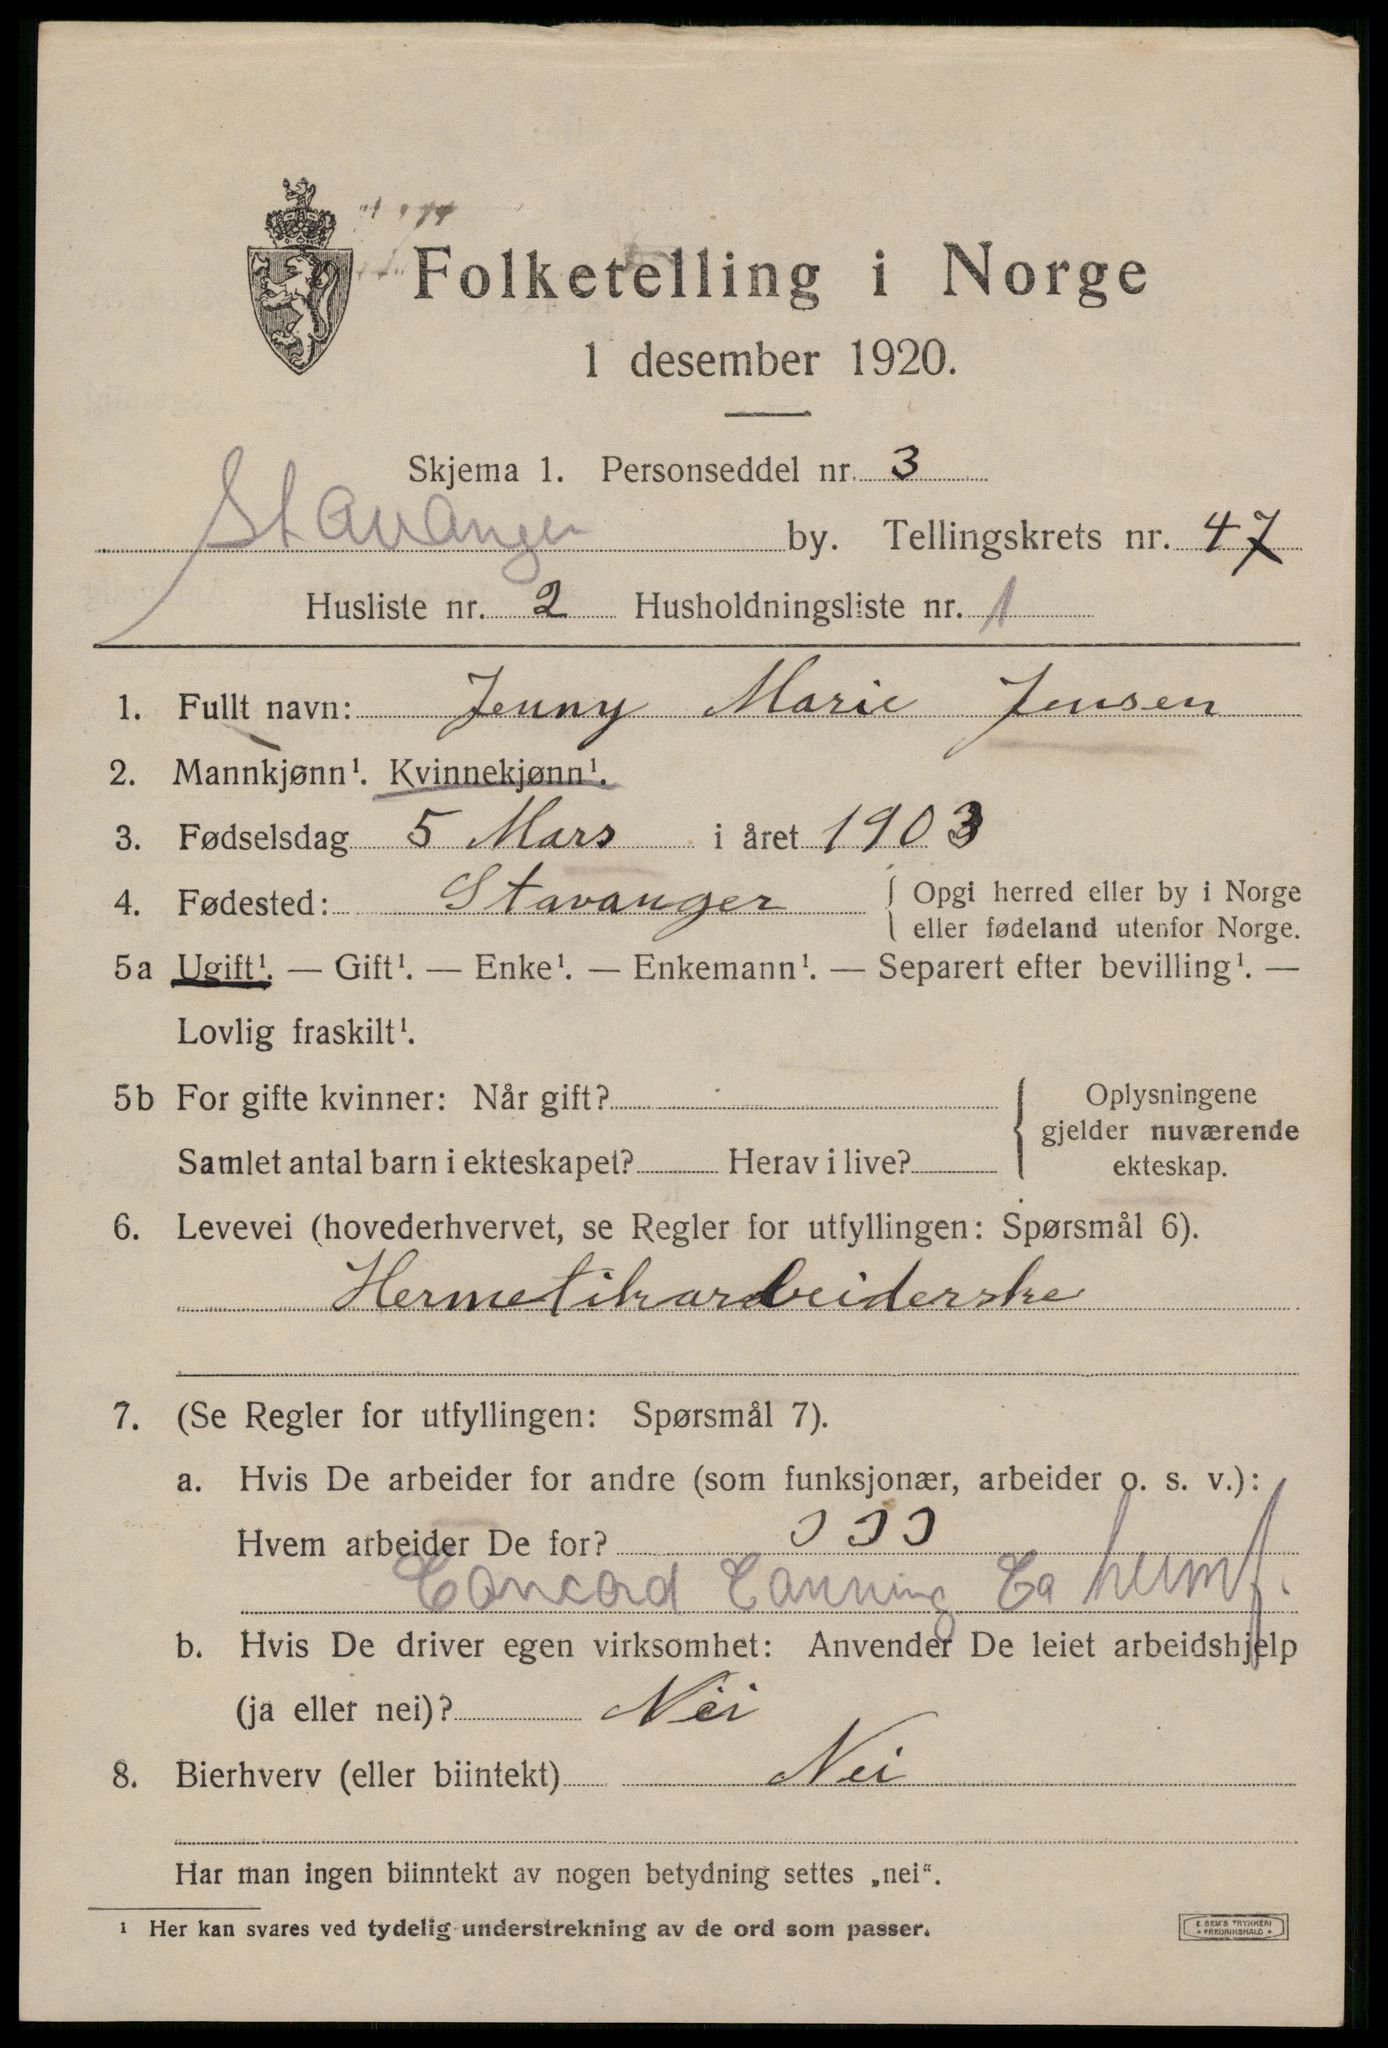 Folketelling i Norge
1 desember 1920.
Skjema 1. Personseddel nr. 3
Stavanger by. Tellingskrets nr. 47
Husliste nr. 2 Husholdningsliste nr. 1
1. Fullt navn: Jenny Marie Jensen
2. Mannkjønn¹. Kvinnekjønn¹.
3. Fødselsdag 5 Mars i året 1903
4. Fødested: Stavanger { Opgi herred eller by i Norge
eller fødeland utenfor Norge.
5a Ugift¹. — Gift¹. — Enke¹. — Enkemann¹. — Separert efter bevilling¹. —
Lovlig fraskilt¹.
5b For gifte kvinner: Når gift? { Oplysningene
gjelder nuværende
Samlet antal barn i ekteskapet? Herav i live? ekteskap.
6. Levevei (hovederhvervet, se Regler for utfyllingen: Spørsmål 6).
Hermetikarbeiderske
7. (Se Regler for utfyllingen: Spørsmål 7).
a. Hvis De arbeider for andre (som funksjonær, arbeider o. s. v.):
Hvem arbeider De for?
Concord Canning Co hermf.
b. Hvis De driver egen virksomhet: Anvender De leiet arbeidshjelp
(ja eller nei)? Nei
8. Bierhverv (eller biintekt) Nei
Har man ingen biinntekt av nogen betydning settes „nei“.
¹ Her kan svares ved tydelig understrekning av de ord som passer.
E. SEM'S TRYKKERI
FREDRIKSHALD